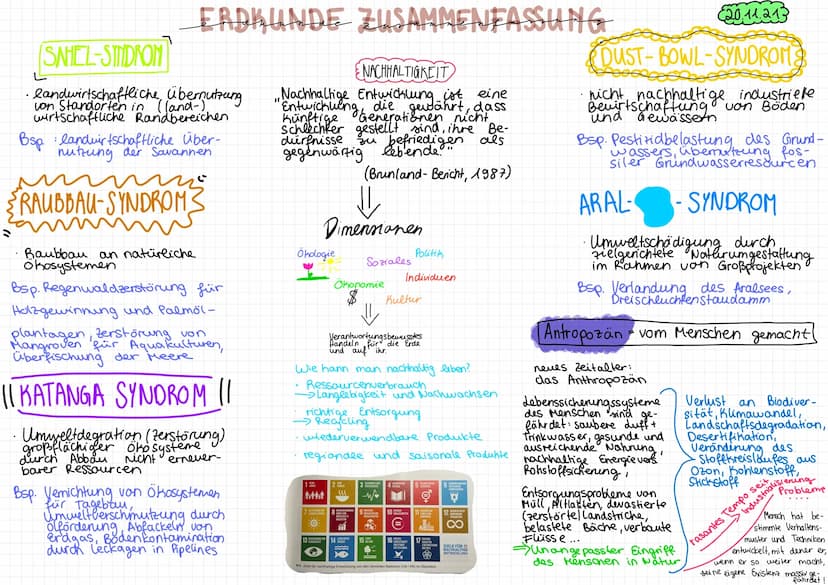 ERDKUNDE ZUSAMMENFASSUNG
20.11.21
SAHEL-SYNDROM
· landwirtschaftliche Übernutzung
von Standorten in (land-)
wirtschaftliche Randbereichen
Bsp.: landwirtschaftliche Über-
nutzung der Savannen
RAUBBAU-SYNDROM
· Raubbau an natürliche
Ökosystemen
Bsp. Regenwaldzerstörung für
Holzgewinnung und Palmöl-
plantagen, Zerstörung von
Mangroven für Aquakulturen,
Überfischung der Meere
KATANGA SYNDROM
· Umweltdegration (Zerstörung)
großflächiger Ökosysteme
durch Abbau nicht erneuer-
barer Ressourcen
Bsp. Vernichtung von Ökosystemen
für Tagebau,
Umweltverschmutzung durch
Ölförderung, Abfackeln von
Erdgas, Bodenkontamination
durch Leckagen in Pipelines
NACHHALTIGKEIT
"Nachhaltige Entwicklung ist eine
Entwicklung, die gewährt, dass
künftige Generationen nicht
schlechter gestellt sind, ihre Be-
dürfnisse zu befriedigen als
gegenwärtig lebende."
(Brunland-Bericht, 1987)
Dimensionen
Ökologie
Soziales
Politik
Ökonomie
Individuen
$
Kultur
Verantwortungsbewusstes
Handeln für die Erde
und auf ihr.
Wie kann man nachhaltig leben?
· Ressourcenverbrauch
→ Langlebigkeit und Nachwachsen
· richtige Entsorgung
→ Recycling
· wiederverwendbare Produkte
· regionale und saisonale Produkte
DUST-BOWL-SYNDROM
· nicht nachhaltige industrielle
Bewirtschaftung von Böden
und Gewässern
Bsp. Pestizidbelastung des Grund-
wassers, Übernutzung fos-
siler Grundwasserresourcen
ARAL-
-SYNDROM
· Umweltschädigung durch
zielgerichtete Naturumgestaltung
im Rahmen von Großprojekten
Bsp. Verlandung des Aralsees,
Dreischluchtenstaudamm
Antropozän - vom Menschen gemacht
neues Zeitalter:
das Anthropozän
Lebenssicherungssysteme
des Menschen sind ge-
fährdet: saubere Luft +
Trinkwasser, gesunde und
ausreichende Nahrung,
nachhaltige Energievers.
Rohstoffsicherung,
Entsorgungsprobleme von
Müll, Altlasten, devastierte
(zerstörte) Landstriche,
belastete Bäche, verbaute
Flüsse ...
→ Unangepasster Eingriff
des Menschen in Natur
Verlust an Biodiver-
sität, Klimawandel,
Landschaftsdegradation,
Desertifikation,
Veränderung des
Stoffkreislaufes aus
Ozon, Kohlenstoff,
Stickstoff
rasantes Tempo seit
Industrialisierung
Probleme
Mensch hat be-
stimmte Verhaltens-
muster und Techniken
entwickelt, mit denen er,
wenn er so weiter macht,
seine eigene Existenz massiv ge-
fährdet!